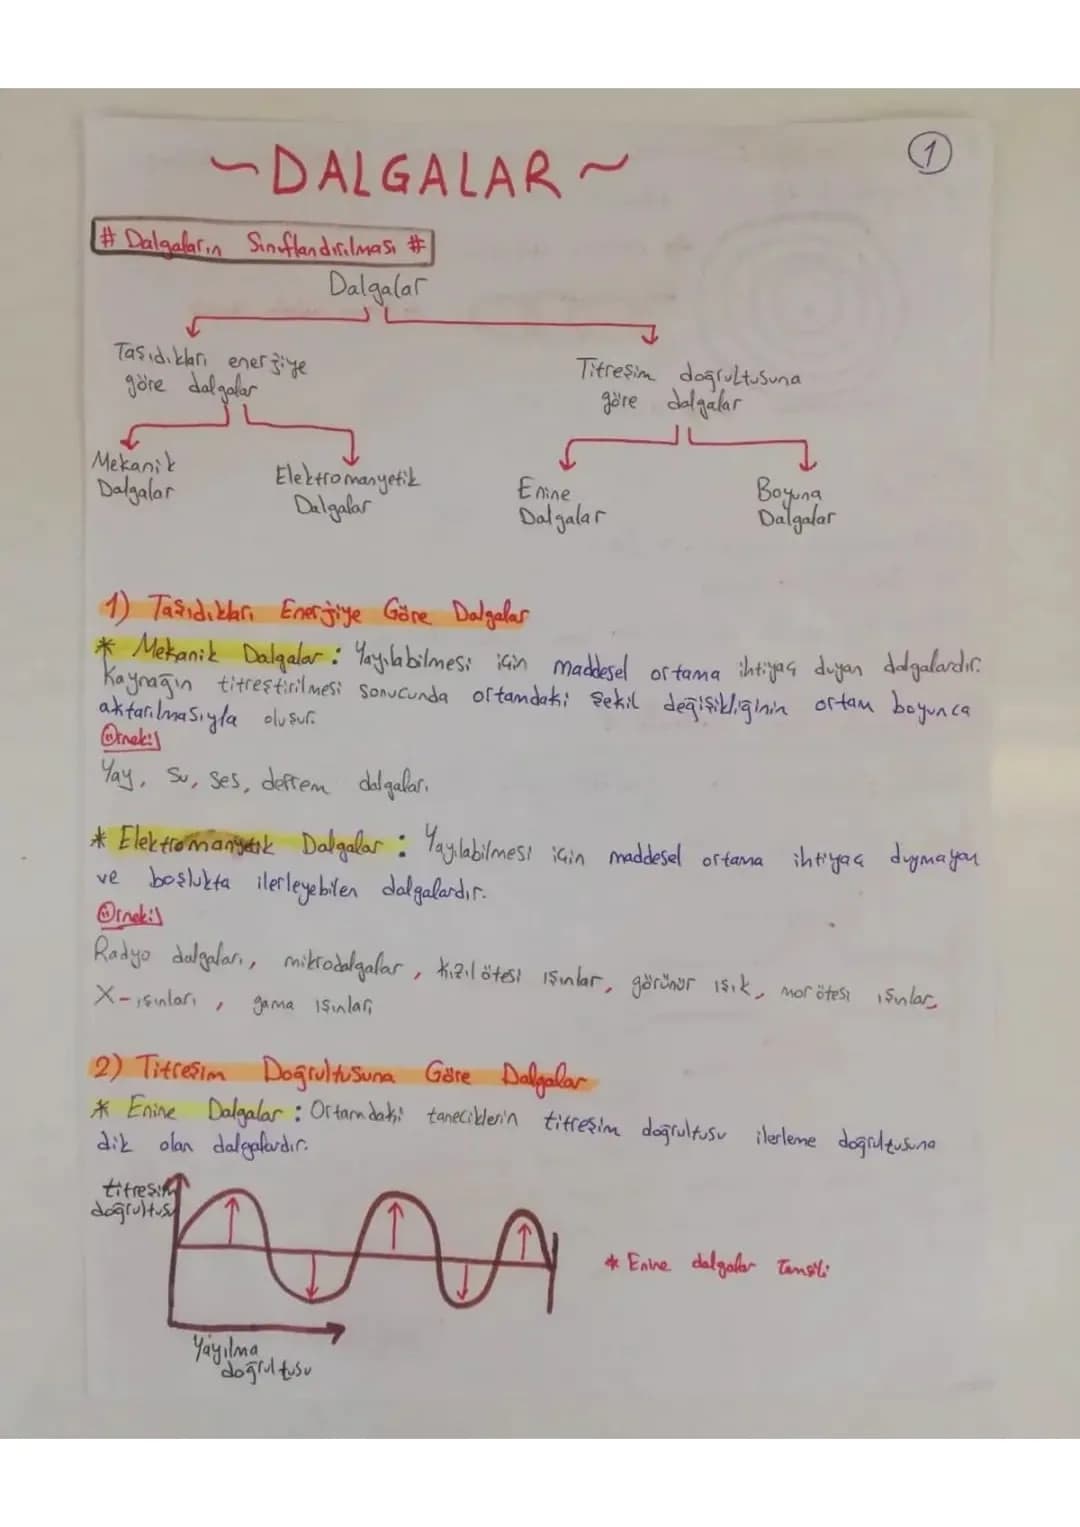 ~DALGALAR~
1
# Dalgaların Sınıflandırılması #
Dalgalar
Taşıdıkları enerjiye
göre dalgalar
Titreşim doğrultusuna
göre dalgalar
Mekanik
Dalgalar
Elektromanyetik
Dalgalar
Enine
Dalgalar
Boyuna
Dalgalar
1) Taşıdıkları Enerjiye Göre Dalgalar
* Mekanik Dalgalar : Yayılabilmesi için maddesel ortama ihtiyaç duyan dalgalardır.
Kaynağın titreştirilmesi sonucunda ortamdaki şekil değişikliğinin ortam boyunca
aktarılmasıyla oluşur.
Örnek:
Yay, su, ses, deprem dalgaları.
* Elektromanyetik Dalgalar : Yayılabilmesi için maddesel ortama ihtiyaç duymayan
ve boşlukta ilerleyebilen dalgalardır.
Örnek:
Radyo dalgaları, mikrodalgalar, kızıl ötesi ışınlar, görünür ışık, mor ötesi ışınlar,
X-ışınları, gama ışınları
2) Titreşim Doğrultusuna Göre Dalgalar
* Enine Dalgalar : Ortamdaki taneciklerin titreşim doğrultusu ilerleme doğrultusuna
dik olan dalgalardır.
titreşim
doğrultusu
* Enine dalgalar Temsili
Yayılma
doğrultusu